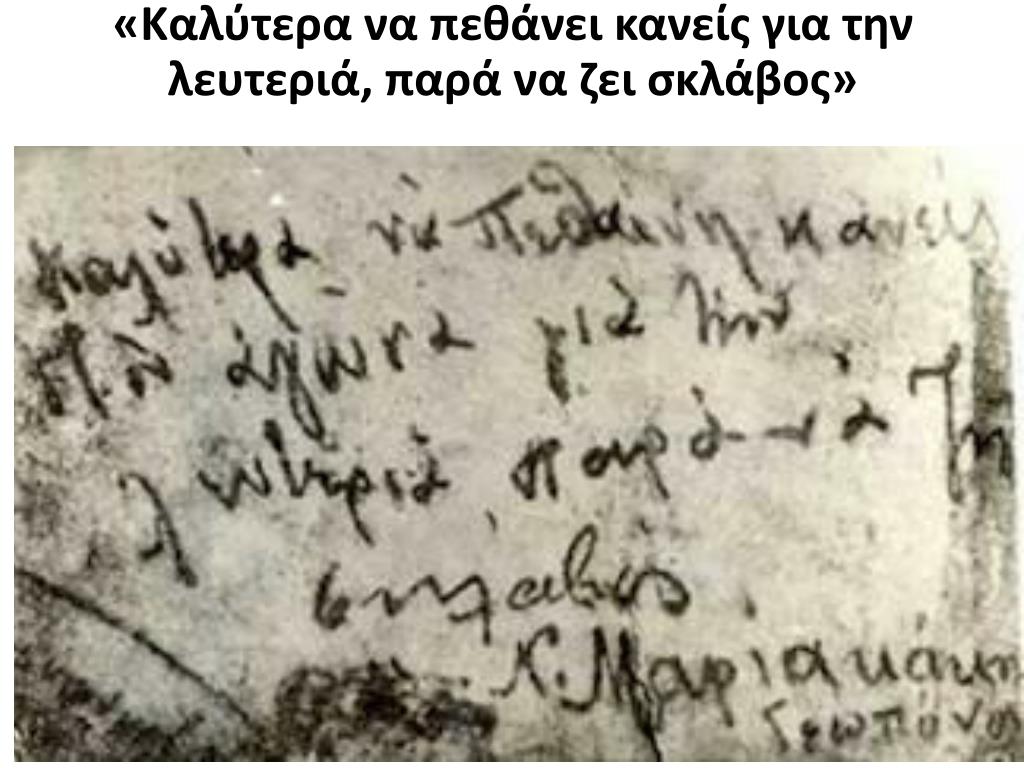 «Καλύτερα να πεθάνει κανείς για την
λευτεριά, παρά να ζει σκλάβος»
Καλύτερα νὰ πεθαίνη κανείς
στὸν ἀγῶνα γιὰ τὴν
λευτεριὰ, παρὰ νὰ ζῆ
σκλάβος.
Ν. Μαριακάκη
Γεωπόνος